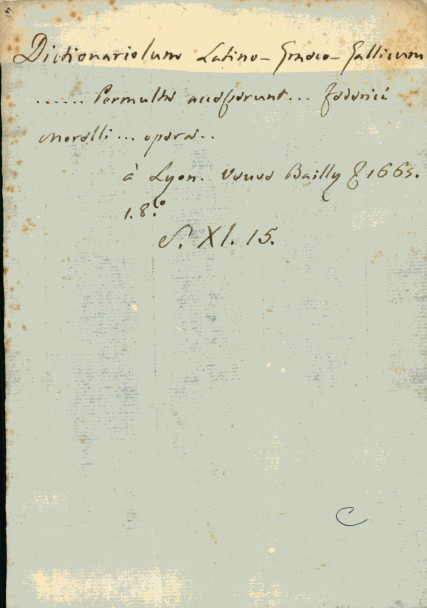 Dictionariolum Latino-Graeco-Gallicum
...... Permulta accesserunt... Federici
Morelli... opera..
à Lyon. Veuve Bailly & 1665.
1. 8.º
S. XI. 15.
C